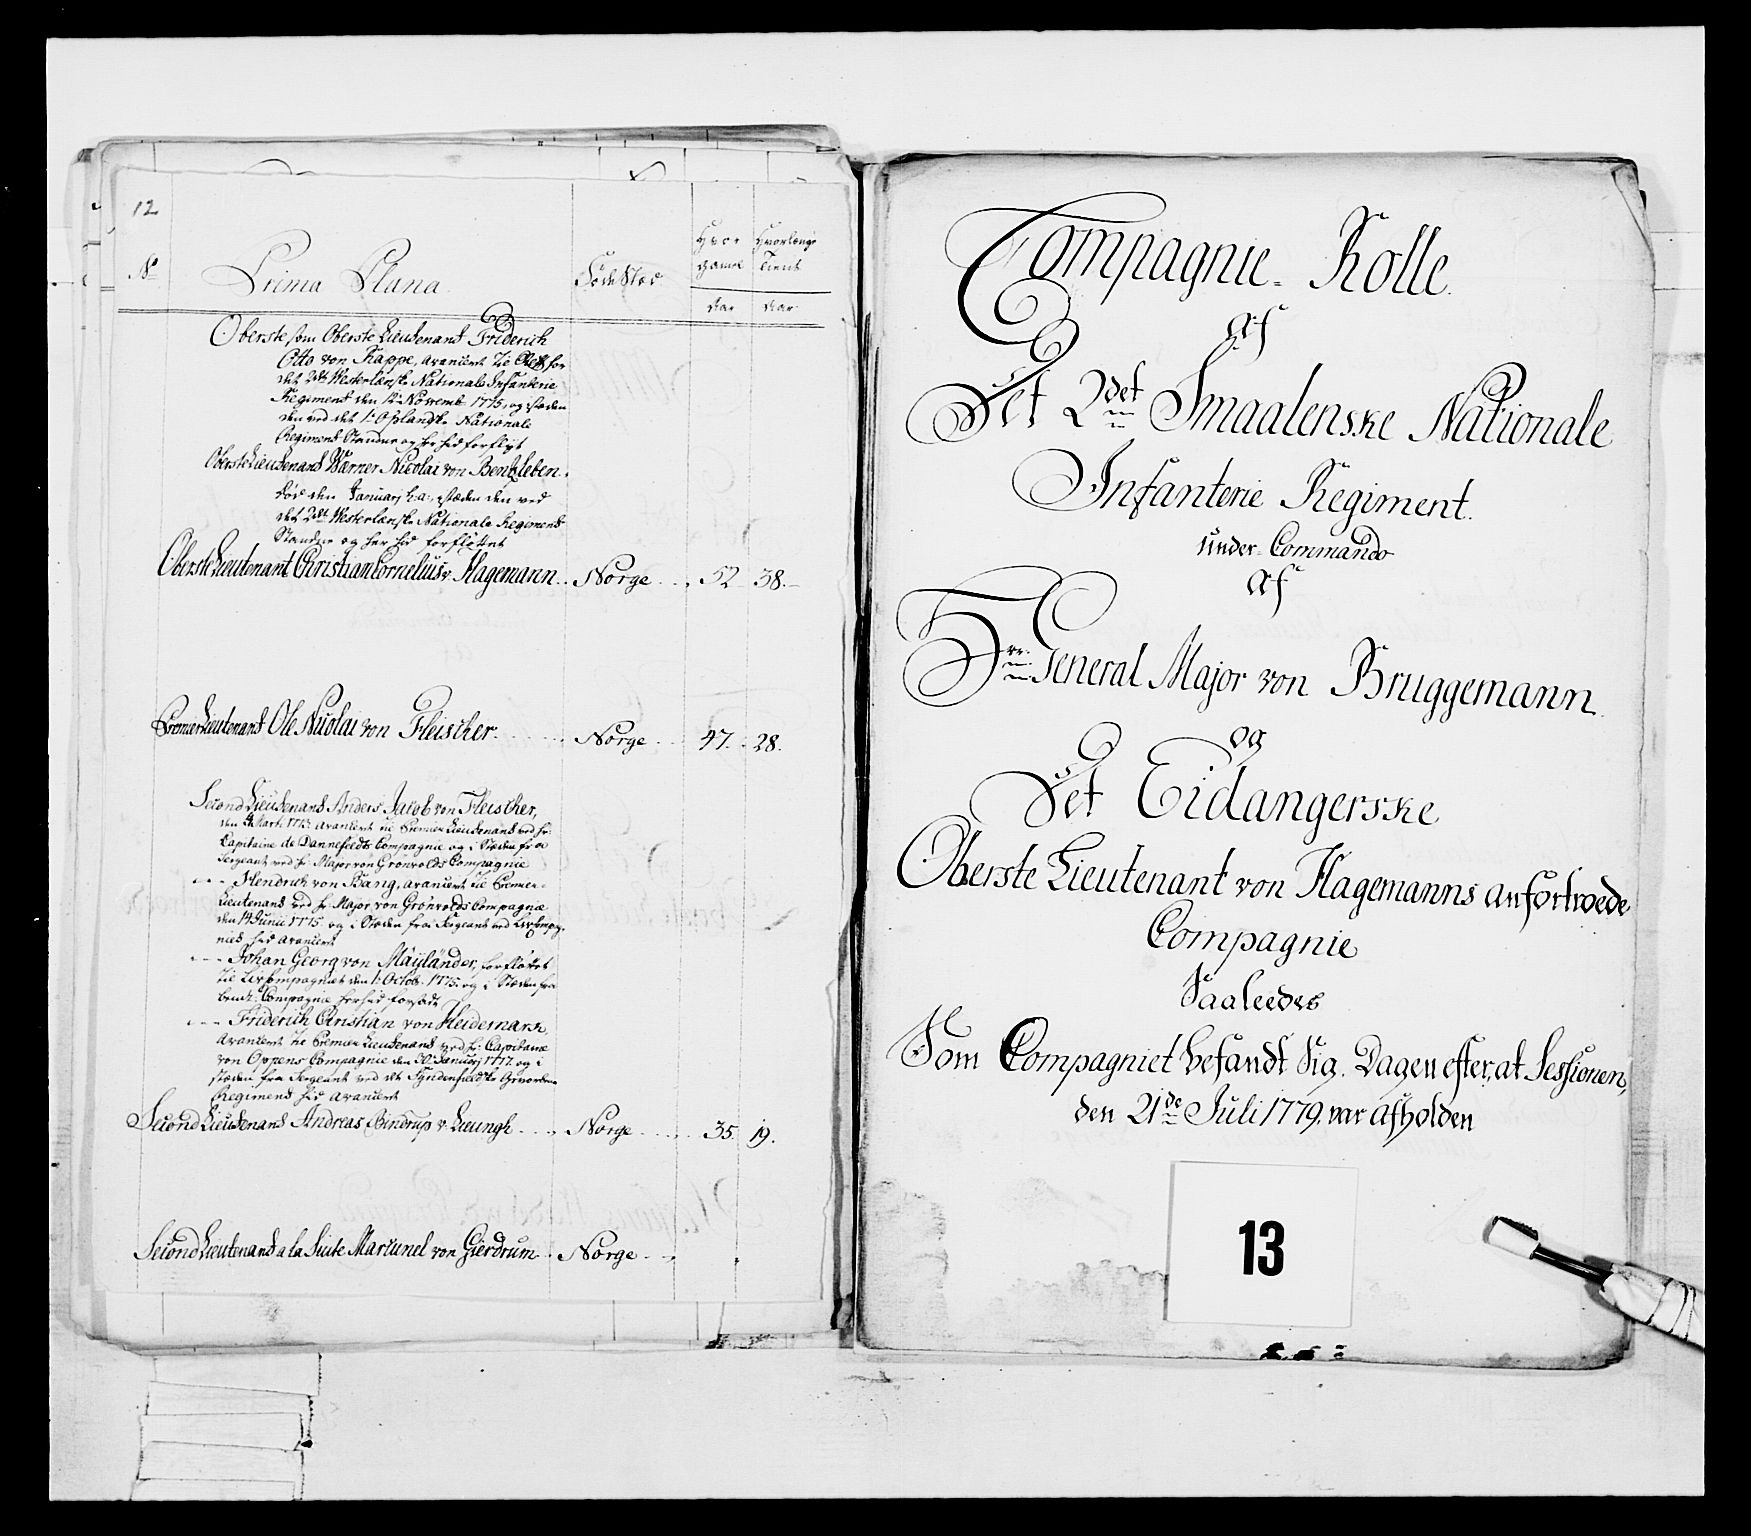 12
No
Prima Plana
Føde Sted
Hvor
gamel
Aar
Hvorlænge
tient
Aar
Oberste, som Oberste Lieutenant Friderich
Otto von Kappe, avanceret til Chef for
det 2det Westerlenske Nationale Infanterie
Regiment den 14 Novemb. 1775, og istæden
den ved det 1te Oplandske Nationale
Regiment Staaende og her hid forfløtt
Oberste Lieutenant Warner Nicolai von Bentzleben
død den Januarj h: a:, istæden den ved
det 2det Westerlenske Nationale Regiment
Staaende og her hid forfløttet
Oberste Lieutenant Christian Cornelius v. Hagemann .. Norge ... 52 38.
Premier Lieutenant Ole Nicolai von Fleischer ...... Norge ... 47. 28.
Second Lieutenant Anders Jacob von Fleischer,
den Marti 1775 avanceret til Premier Lieutenant ved Hr:
Capitaine de Dannefeldts Compagnie og i Stæden fra
Sergeant ved Hr: Major von Grønvolds Compagnie
--- Hendrich von Bang, avanceret til Premier
Lieutenant ved Hr: Major von Grønvolds Compagnie
den 14 Junii 1775. og i Stæden fra Sergeant ved Livcompag-
niet hid avanceret
--- Johan Georg von Maÿländer, forfløttet
til Livcompagniet den 1: Octob: 1775. og i Stæden fra
bemt: Compagnie herhid forsadt
--- Friderich Christian von Heidemark
avanceret til Premier Lieutenant ved Hr: Capitaine
von Oppens Compagnie den 30 Januarj 1777. og i
stæden fra Sergeant ved det Syndenfieldske Gevorbne
Regiment hid avanceret
Second Lieutenant Andreas Bindrup v. Liungh .... Norge .... 35. 19.
Second Lieutenant a la Suite Martinel von Gierdrum .. Norge ...
Compagnie-Rolle
Af
Det 2det Smaalenske Nationale
Infanterie Regiment
under Commando
Af
Hrr: General Major von Bruggemann
og
Det Eidangerske
Oberste Lieutenant von Hagemanns anfortroede
Compagnie
Saaleedes
Som Compagniet befandt Sig, Dagen efter, at Sessionen,
den 21de Juli 1779, var afholden
13